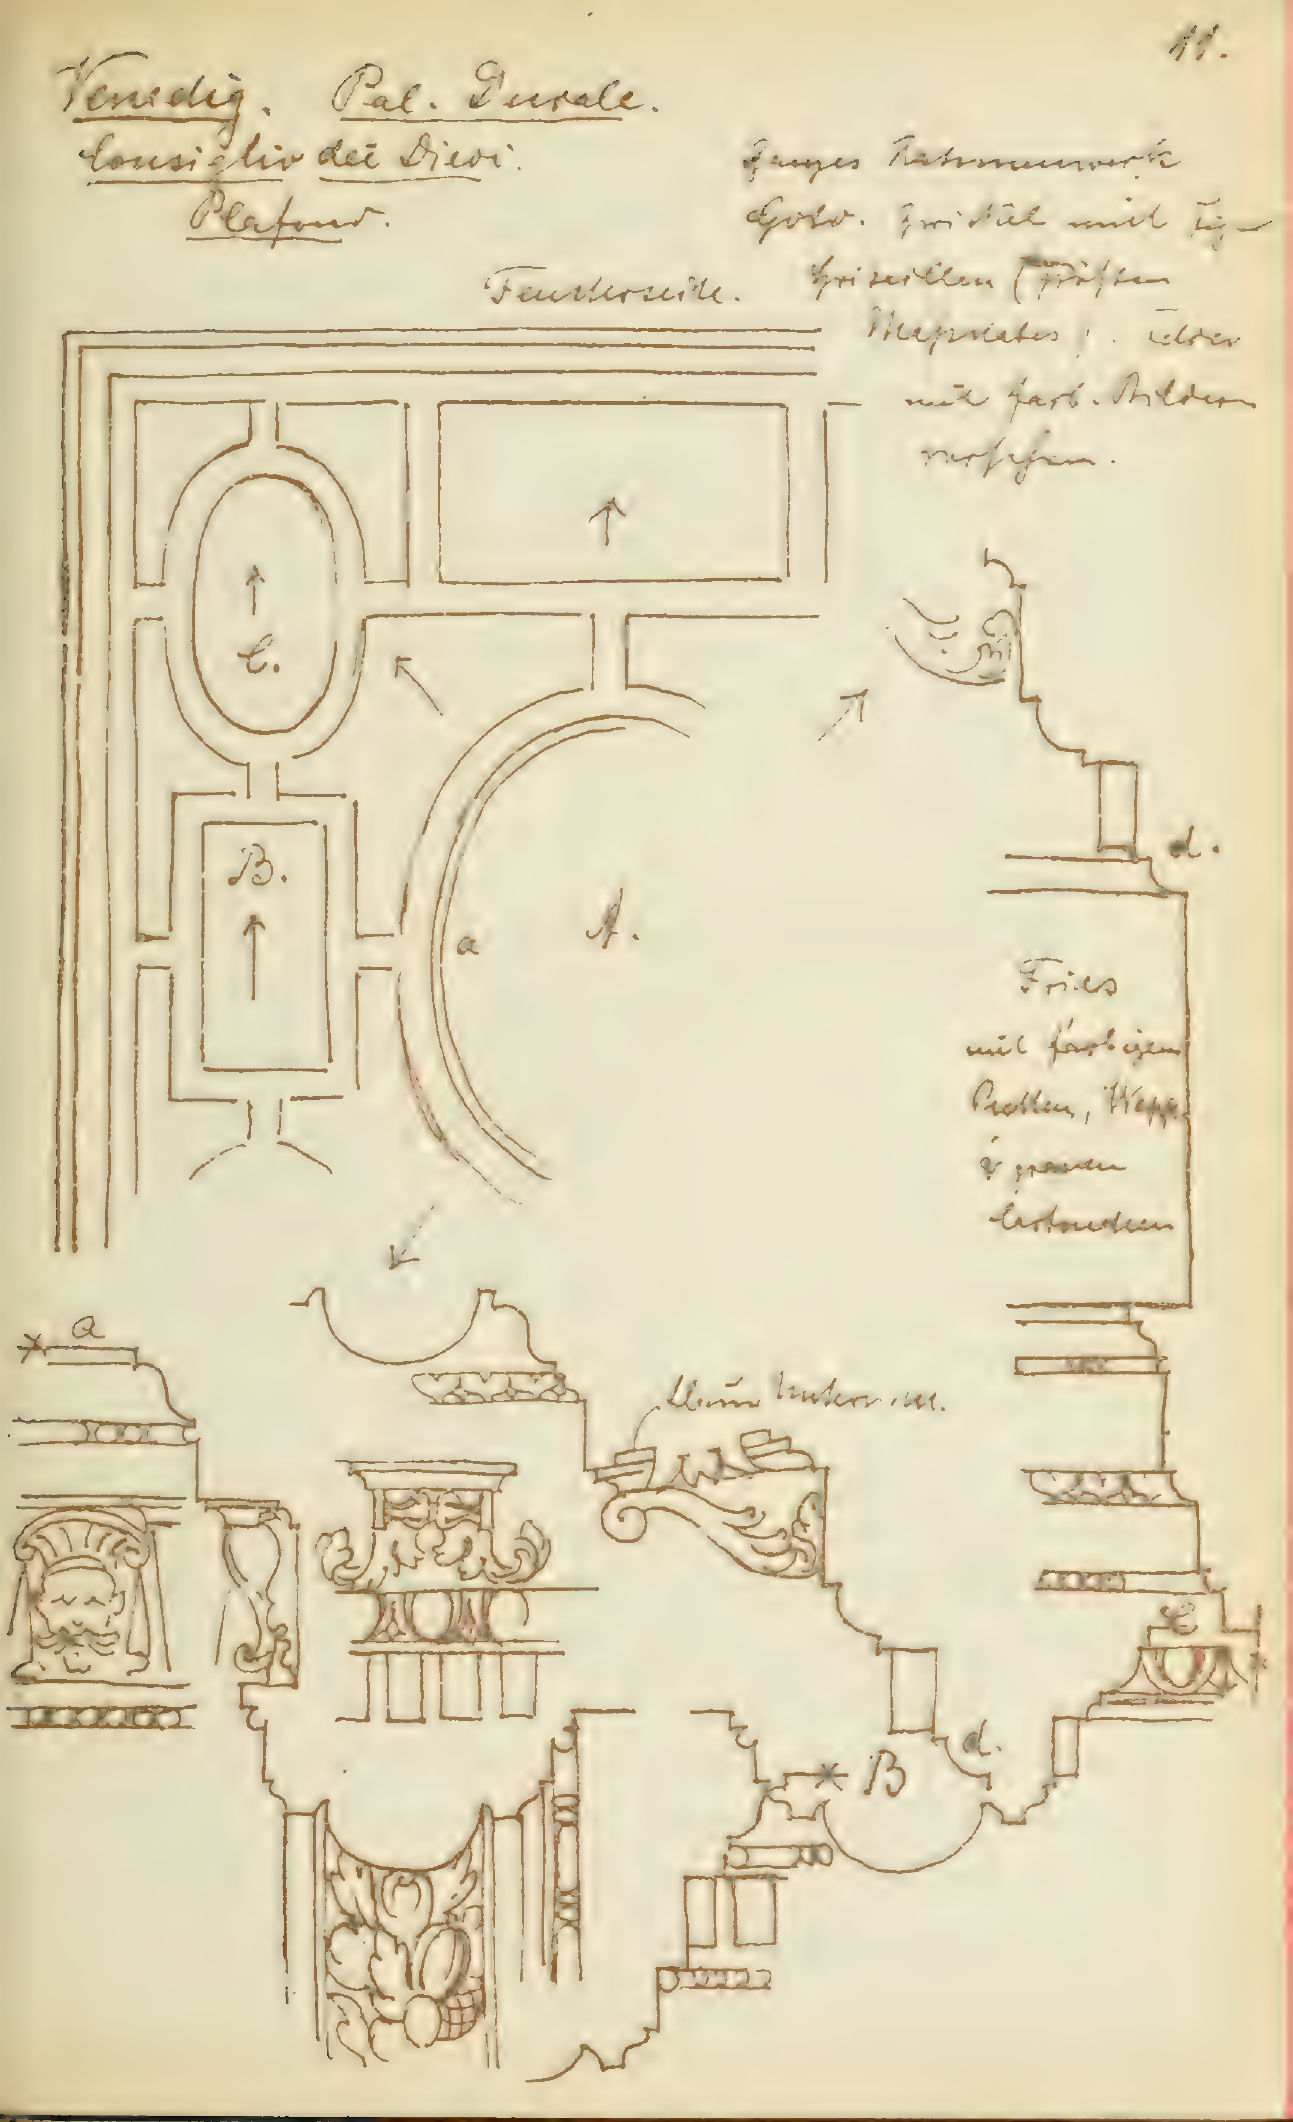 11.
Venedig. Pal. Ducale.
Consiglio dei Dieci.
Plafond.
Ganzes Rahmenwerk
Gold. Zwickel mit Fig-
Grisaillen
Felder
mit farb. Bildern
versehen.
Fensterseite.
C.
B.
a
A.
d.
Fries
mit farbigen
Putten, Wapp.
& grauen
Cartouchen
a
C
d.
B